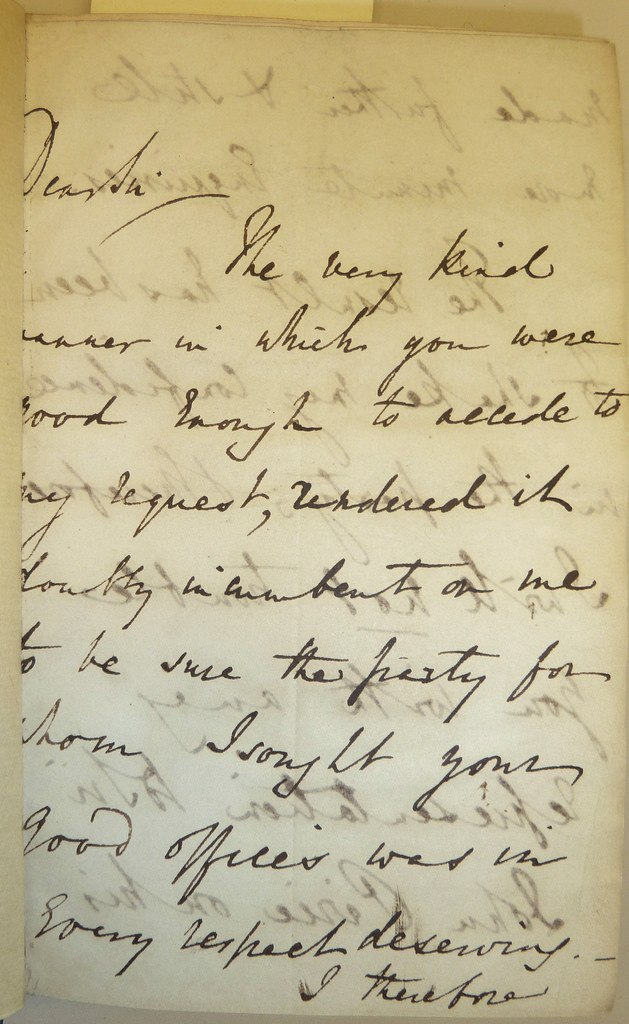 Dear Sir
The very kind
manner in which you were
good Enough to accede to
my request, rendered it
doubly incumbent on me
to be sure the party for
whom I sought your
good offices was in
Every respect deserving. _
I therefore